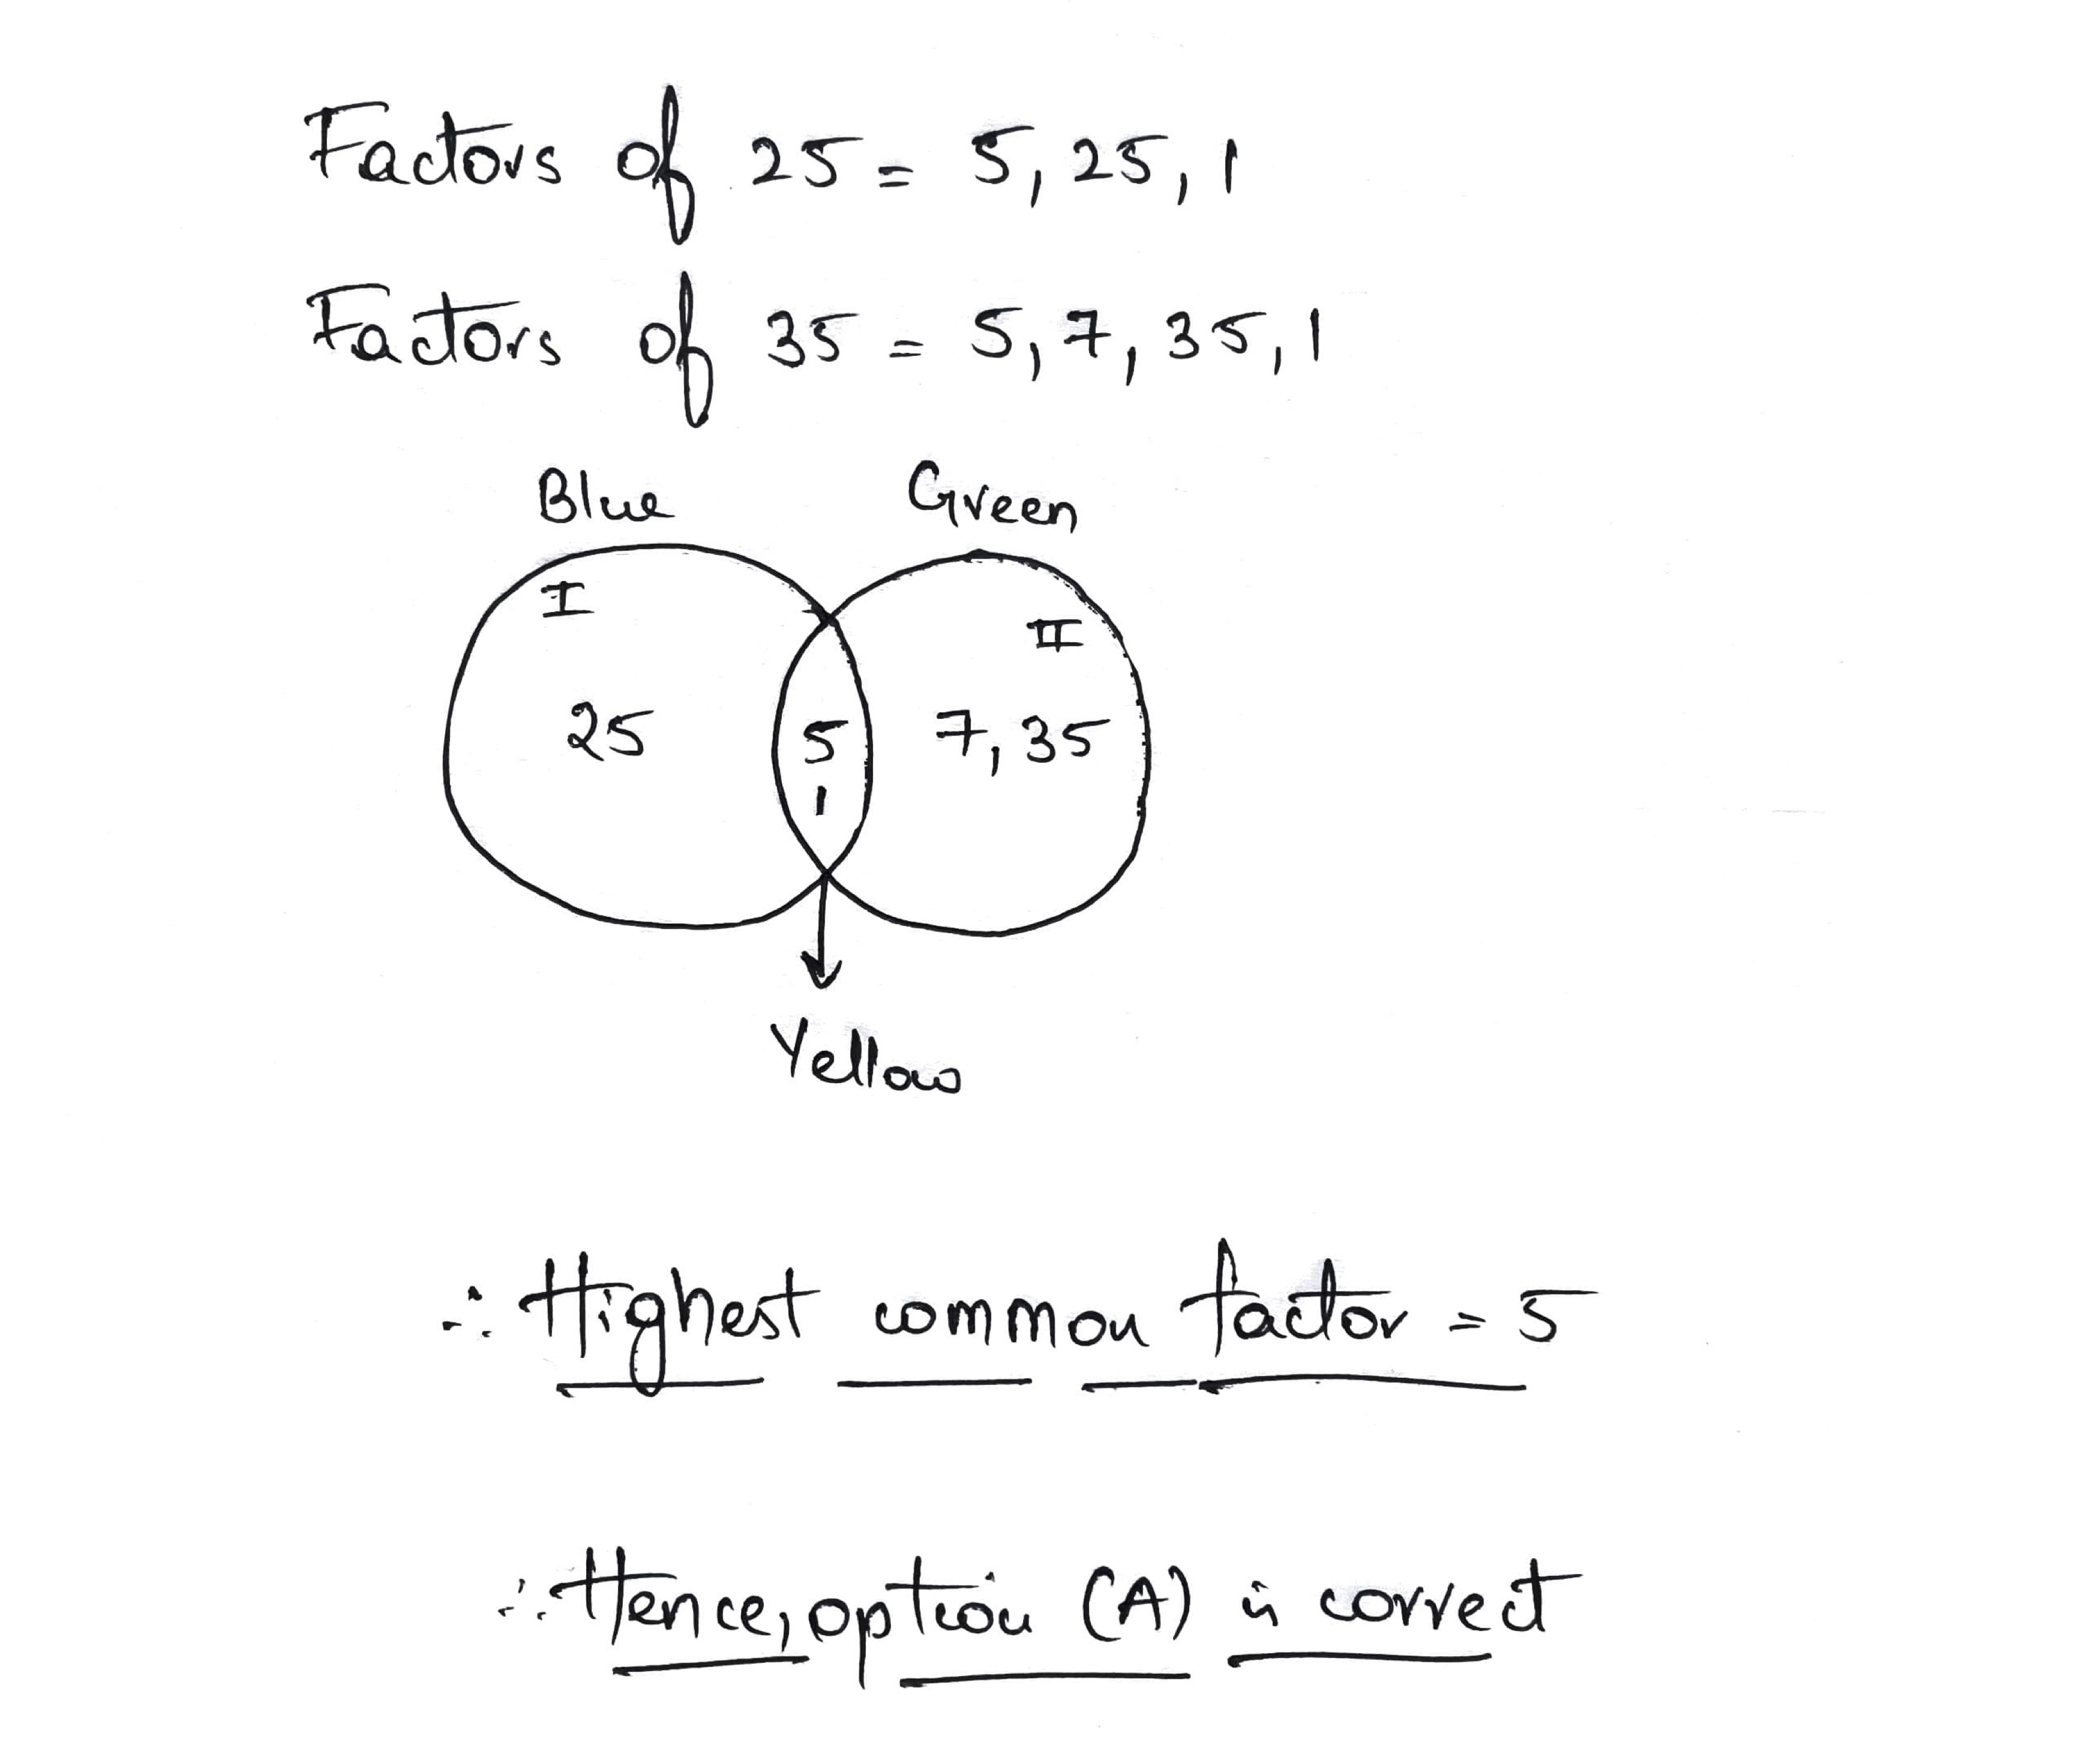 Factors of 25 = 5, 25, 1
Factors of 35 = 5, 7, 35, 1
Blue Green
I II
25 5 7, 35
1
Yellow
∴ Highest common factor = 5
∴ Hence, option (A) is correct